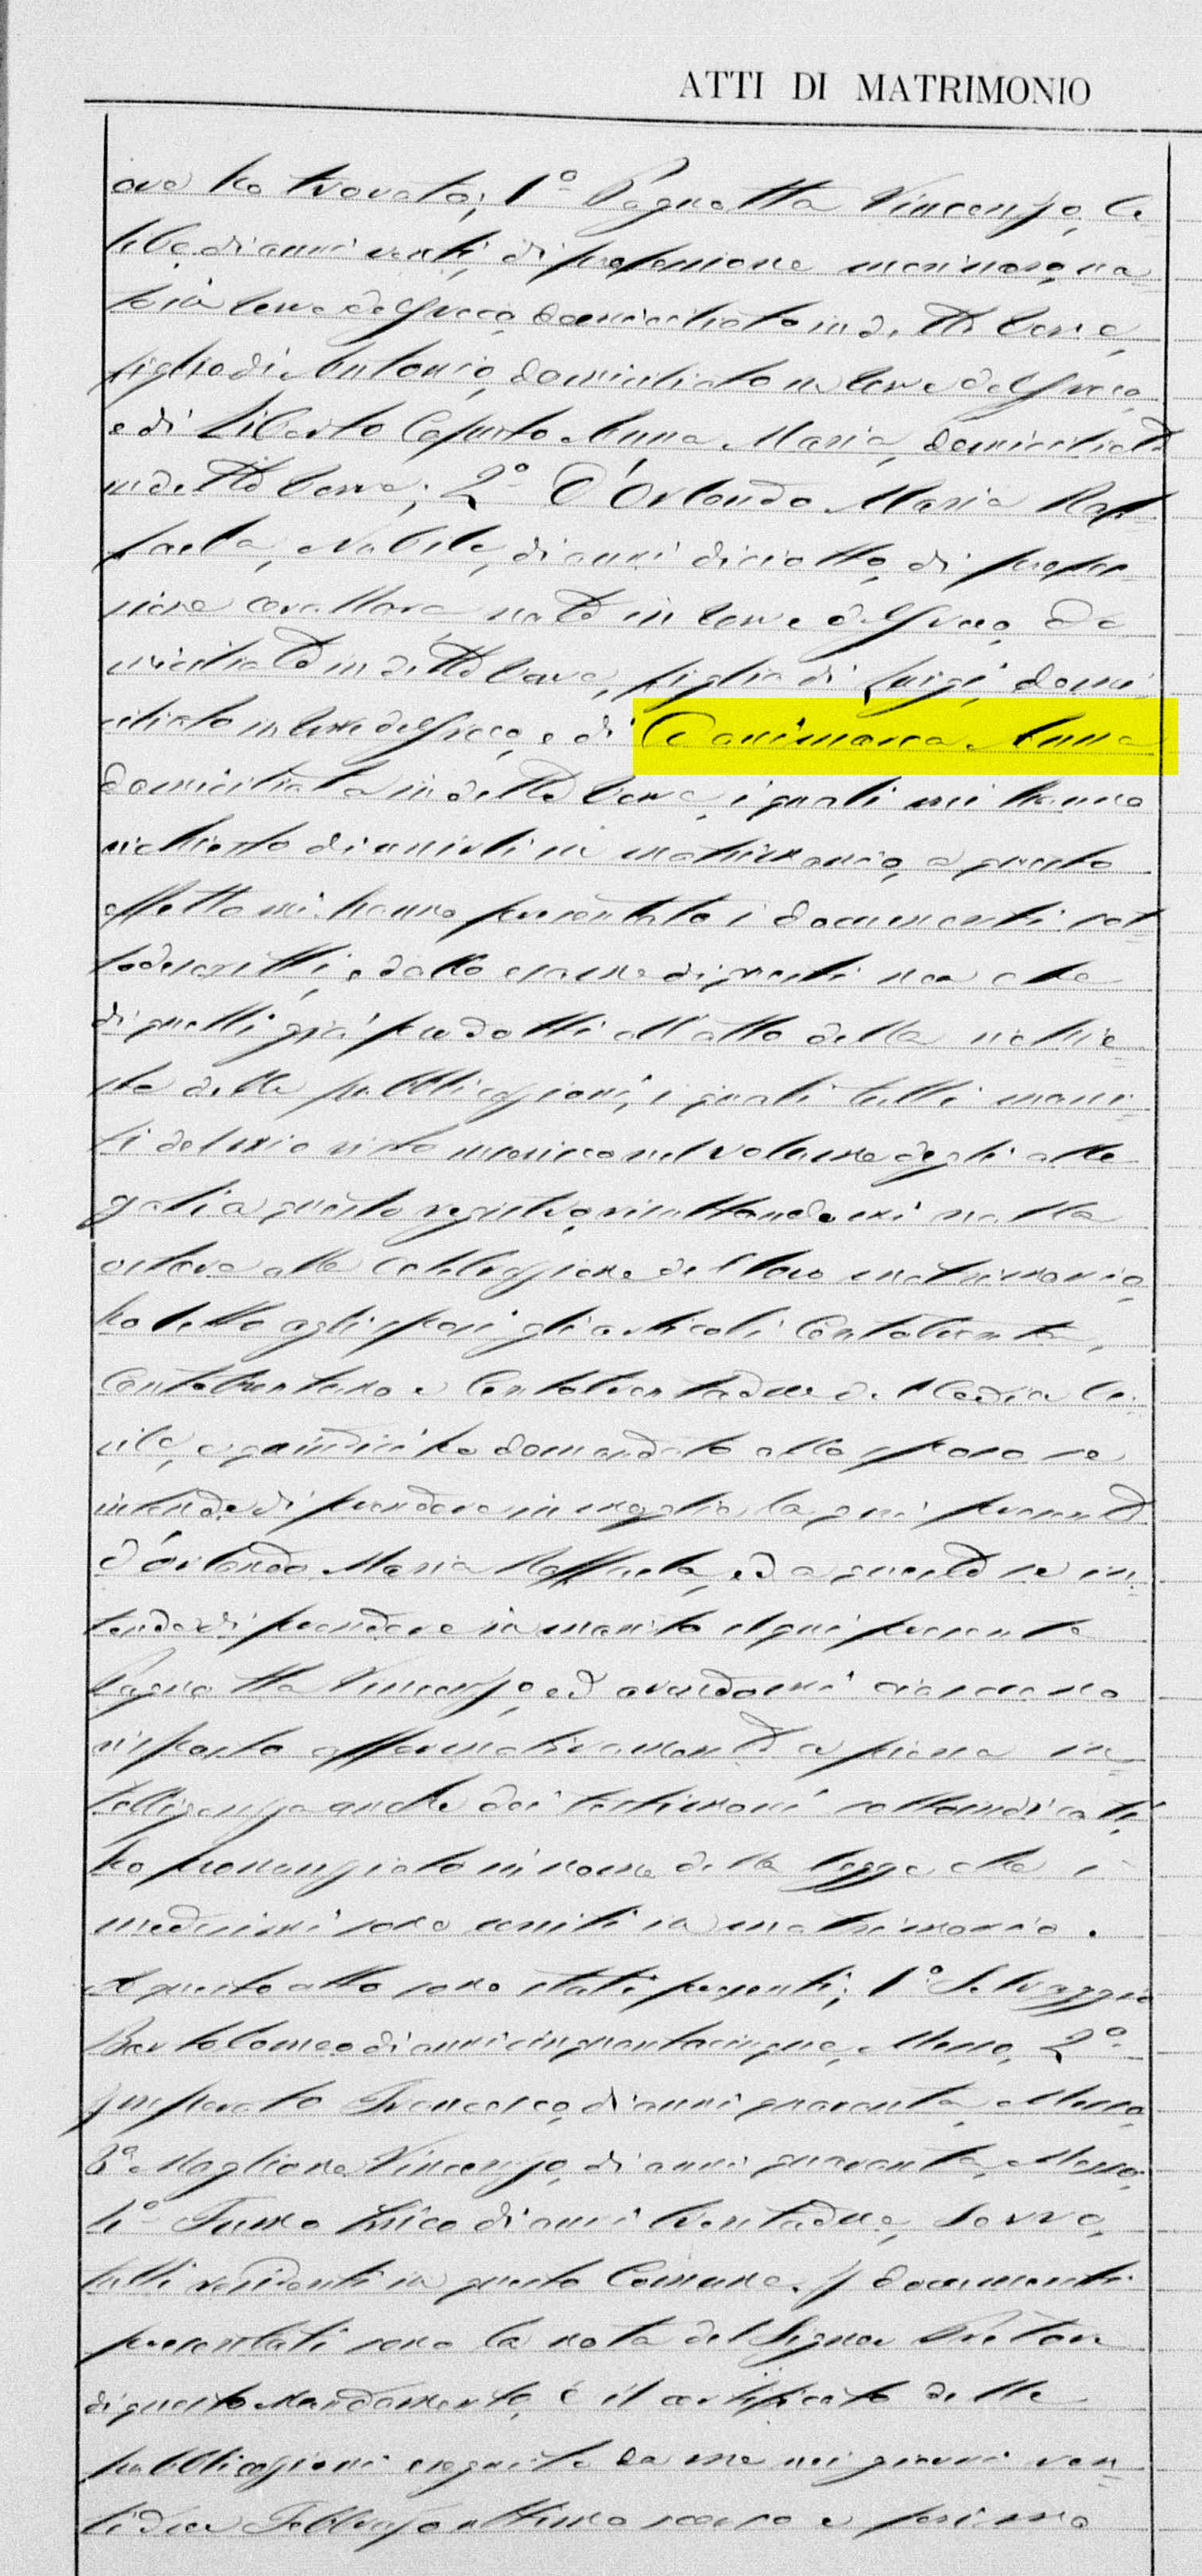 ATTI DI MATRIMONIO
ove ho trovato; 1º Pagnotta Vincenzo, ce=
libe di anni venti, di professione marinaro, na=
to in Torre del Greco, domiciliato in detta Torre,
figlio di Antonio, domiciliato in Torre del Greco,
e di Liberto Caputo Anna Maria, domiciliata
in detta Torre; 2º D'Orlando Maria Raf=
faela, nubile, di anni diciotto, di profes=
sione corallara nata in Torre del Greco, do
miciliata in detta Torre, figlia di Luigi, domi
ciliato in Torre del Greco, e di Anna
domiciliata in detta Torre, i quali mi hanno
richiesto di unirli in matrimonio, a questo
effetto mi hanno presentato i documenti sot=
todescritti, e dallo esame di questi non che
di quelli già prodotti all'atto della richie=
sta delle pubblicazioni, i quali tutti muni=
ti del mio visto inserisco nel volume degli alle
gati a questo registro, risultandomi nulla
ostare alla celebrazione del loro matrimonio,
ho letto agli sposi gli articoli Centotrenta,
Centotrentuno e Centotrentadue del Codice Ci=
vile, e quindi ho domandato allo sposo se
intende di prendere in moglie la qui presente
D'Orlando Maria Raffaela, ed a questa se in=
tende di prendere in marito il qui presente
Pagnotta Vincenzo, ed avendomi ciascuno
risposto affermativamente a piena in=
telligenza anche dei testimoni sottoindicati,
ho pronunziato in nome della legge che i
medesimi sono uniti in matrimonio.
A questo atto sono stati presenti; 1º Selvaggio
Bartolomeo di anni cinquantacinque, Messo, 2º
Imparato Francesco, di anni quaranta, Messo,
3º Maglione Vincenzo, di anni quaranta, Messo,
4º di anni trentadue, Servo,
tutti residenti in questo Comune. I documenti
presentati sono la nota del Signor Pretore
di questo Mandamento, e il certificato delle
pubblicazioni eseguite da me nei giorni ven=
tidue Febbrajo ultimo scorso e primo